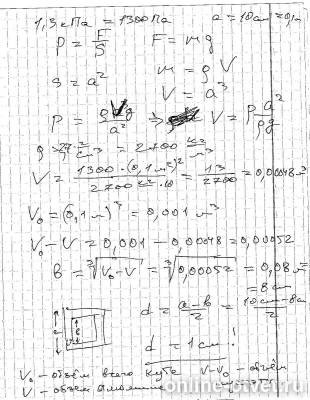 1,3 кПа = 1300 Па a = 10 см = 0,1м
P = F/S F = mg
s = a² m = ρ V
V = a³
P = ρVg/a² => V = P a²/ρg
ρ = 2,7 г/см³ = 2700 кг/м³
V = 1300·(0,1м)²/2700 кг/м³·10 = 13/2700 = 0,00048 м³
V₀ = (0,1м)³ = 0,001 м³
V₀ - V = 0,001 - 0,00048 = 0,00052
b = ∛V₀-V = ∛0,00052 = 0,08 м
= 8 см
d = a-b/2 = 10см-8см/2
d = 1 см!
V₀ - объём всего куба V₀-V - объём
V - объём алюминия
online-otvet.ru